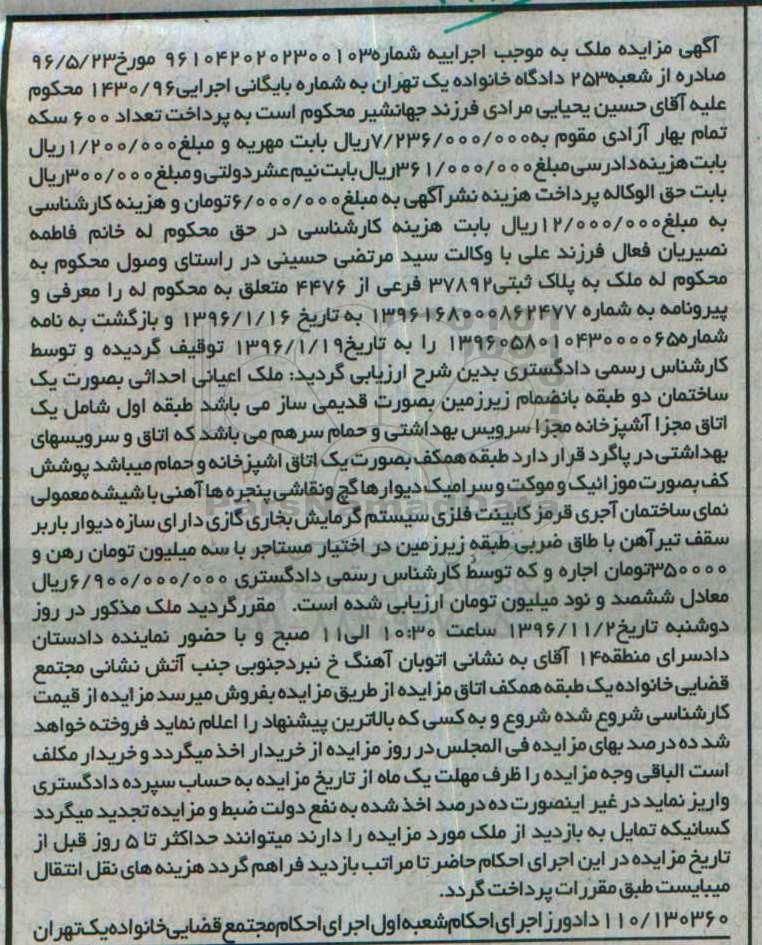 آگهی مزایده ملک به موجب اجراییه شماره۹۶۱۰۴۲۰۲۰۲۳۰۰۱۰۳ مورخ۹۶/۵/۲۳
صادره از شعبه۲۵۳ دادگاه خانواده یک تهران به شماره بایگانی اجرایی۱۴۳۰/۹۶ محکوم
علیه آقای حسین یحیایی مرادی فرزند جهانشیر محکوم است به پرداخت تعداد ۶۰۰ سکه
تمام بهار آزادی مقوم به۷/۲۳۶/۰۰۰/۰۰۰ریال بابت مهریه و مبلغ۱/۲۰۰/۰۰۰ریال
بابت هزینه دادرسی مبلغ۳۶۱/۰۰۰/۰۰۰ریال بابت نیم عشر دولتی و مبلغ۳۰۰/۰۰۰ریال
بابت حق الوکاله پرداخت هزینه نشر آگهی به مبلغ۶/۰۰۰/۰۰۰تومان و هزینه کارشناسی
به مبلغ۱۲/۰۰۰/۰۰۰ریال بابت هزینه کارشناسی در حق محکوم له خانم فاطمه
نصیریان فعال فرزند علی با وکالت سید مرتضی حسینی در راستای وصول محکوم به
محکوم له ملک به پلاک ثبتی۳۷۸۹۲ فرعی از ۴۴۷۶ متعلق به محکوم له را معرفی و
پیرونامه به شماره ۱۳۹۶۱۶۸۰۰۰۸۶۲۴۷۷ به تاریخ ۱۳۹۶/۱/۱۶ و بازگشت به نامه
شماره۱۳۹۶۰۵۸۰۱۰۴۳۰۰۰۰۶۵ را به تاریخ۱۳۹۶/۱/۱۹ توقیف گردیده و توسط
کارشناس رسمی دادگستری بدین شرح ارزیابی گردید: ملک اعیانی احداثی بصورت یک
ساختمان دو طبقه بانضمام زیرزمین بصورت قدیمی ساز می باشد طبقه اول شامل یک
اتاق مجزا آشپزخانه مجزا سرویس بهداشتی و حمام سرهم می باشد که اتاق و سرویسهای
بهداشتی در پاگرد قرار دارد طبقه همکف بصورت یک اتاق اشپزخانه و حمام میباشد پوشش
کف بصورت موزائیک و موکت و سرامیک دیوار ها گچ ونقاشی پنجره ها آهنی با شیشه معمولی
نمای ساختمان آجری قرمز کابینت فلزی سیستم گرمایش بخاری گازی دارای سازه دیوار باربر
سقف تیرآهن با طاق ضربی طبقه زیرزمین در اختیار مستاجر با سه میلیون تومان رهن و
۳۵۰۰۰۰تومان اجاره و که توسط کارشناس رسمی دادگستری ۶/۹۰۰/۰۰۰/۰۰۰ریال
معادل ششصد و نود میلیون تومان ارزیابی شده است. مقررگردید ملک مذکور در روز
دوشنبه تاریخ۱۳۹۶/۱۱/۲ ساعت ۱۰:۳۰ الی۱۱ صبح و با حضور نماینده دادستان
دادسرای منطقه۱۴ آقای به نشانی اتوبان آهنگ خ نبردجنوبی جنب آتش نشانی مجتمع
قضایی خانواده یک طبقه همکف اتاق مزایده از طریق مزایده بفروش میرسد مزایده از قیمت
کارشناسی شروع شده شروع و به کسی که بالاترین پیشنهاد را اعلام نماید فروخته خواهد
شد ده درصد بهای مزایده فی المجلس در روز مزایده از خریدار اخذ میگردد و خریدار مکلف
است الباقی وجه مزایده را ظرف مهلت یک ماه از تاریخ مزایده به حساب سپرده دادگستری
واریز نماید در غیر اینصورت ده درصد اخذ شده به نفع دولت ضبط و مزایده تجدید میگردد
کسانیکه تمایل به بازدید از ملک مورد مزایده را دارند میتوانند حداکثر تا ۵ روز قبل از
تاریخ مزایده در این اجرای احکام حاضر تا مراتب بازدید فراهم گردد هزینه های نقل انتقال
میبایست طبق مقررات پرداخت گردد.
۱۱۰/۱۳۰۳۶۰ دادورز اجرای احکام شعبه اول اجرای احکام مجتمع قضایی خانواده یک تهران